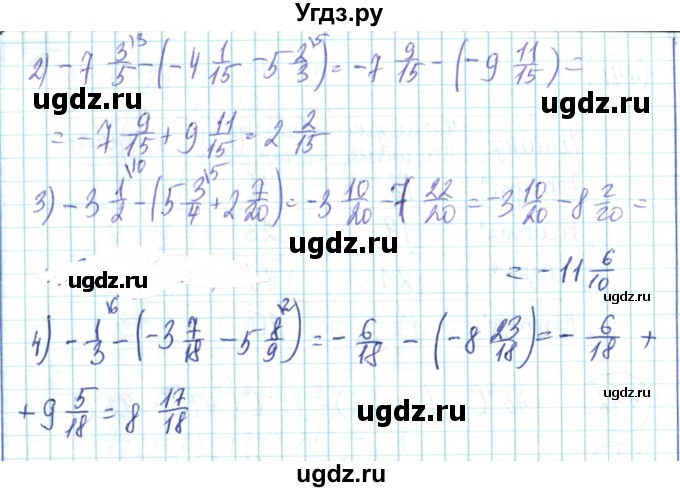 Угдз.ру
2) -7 3/5 \3 - (-4 1/15 - 5 2/3 \5) = -7 9/15 - (-9 11/15) =
ugdz.ru
ugdz.ru
= -7 9/15 + 9 11/15 = 2 2/15
3) -3 1/2 \10 - (5 3/4 \5 + 2 7/20) = -3 10/20 - 7 22/20 = -3 10/20 - 8 2/20 =
ugdz.ru
ugdz.ru
= -11 6/10
4) -1/3 \6 - (-3 7/18 - 5 8/9 \2) = -6/18 - (-8 23/18) = -6/18 +
+ 9 5/18 = 8 17/18
ugdz.ru
ugdz.ru
ugdz.ru